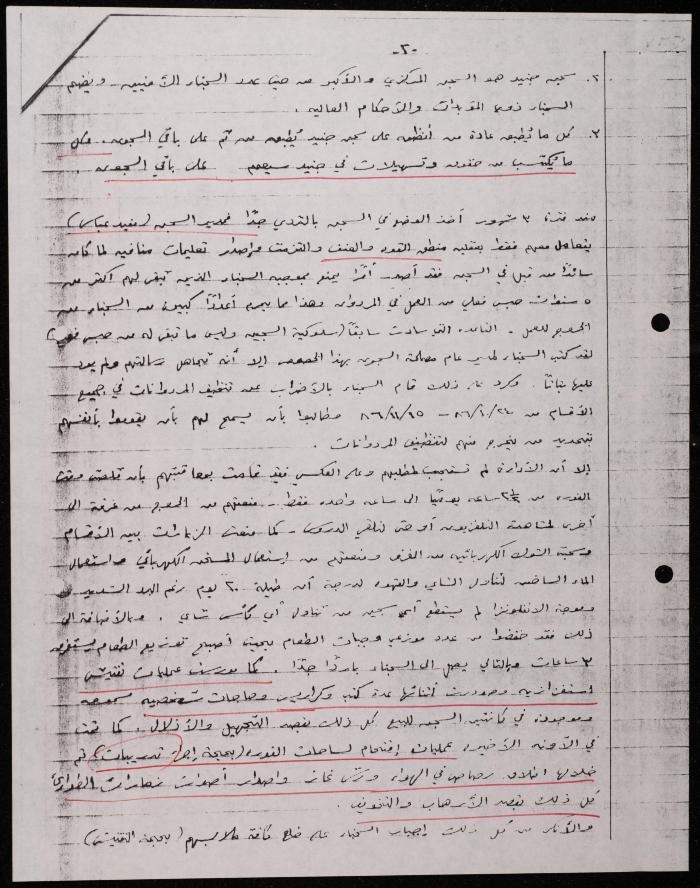 -٢-
٢. سجن جنيد هو السجن المركزي والأكبر من حيث عدد السجناء الأمنيين - ويضم
السجناء ذوي المؤبدات والأحكام العاليه .
٣. كل ما يُطبق عادة من أنظمة على سجن جنيد يُطبق من ثم على باقي السجون، وكل
ما يُكتسب من حقوق وتسهيلات في جنيد سيعمم على باقي السجون .
منذ فترة ٣ شهور أخذ الوضع في السجن بالتردي جدًا فمدير السجن (منيد عباس)
يتعامل معهم فقط بعقلية منطق القوه والعنف والتزمت وإصدار تعليمات منافيه لما كان
سائدًا من قبل في السجن فقد أصدر أمرًا يمنع بموجبه السجناء الذين تبقى لهم أكثر من
٥ سنوات حبس فعلي من العمل في المردوان وهذا مما يحرم أعدادًا كبيره من السجناء من
الخروج للعمل - القاعده التي سادت سابقًا (سلوكية السجين وليس ما تبقى له من حبس فعلي)
لقد كتب السجناء لمدير عام مصلحة السجون بهذا الخصوص إلا أنه تجاهل رسالتهم ولم يرد
عليها بتاتًا . وكرد على ذلك قام السجناء بالأضراب عن تنظيف المردوانات في جميع
الأقسام من وطالبوا بأن يسمح لهم بأن يقوموا بأنفسهم
بتحديد من يخرج منهم لتنظيف المردوانات .
إلا أن الأداره لم تستجب لمطلبهم وعلى العكس فقد قامت بمعاقبتهم بأن قلصت وقت
الفوره من ٢½ ساعه يوميًا الى ساعه واحده فقط - منعتهم من الخروج من غرفة الى
أخرى لمشاهدة التلفزيون أو حتى لتلقي الدروس - كما منعت الزيارات بين الأقسام
وسحبت الكهربائيه من الغرف ومنعتهم من إستعمال المسخن الكهربائي وإستعمال
الماء الساخن لتناول الشاي والقهوه لدرجة أن طيلة ٢٠ يوم رغم البرد الشديد
وموجة الانفلونزا لم يستطع أي سجين من تناول أي كأس شاي . وبالأضافة الى
ذلك فقد خفضوا من عدد موزعي وجبات الطعام بحيث أصبح توزيع الطعام يستغرق
٣ ساعات وبالتالي يصل الى السجناء باردًا جدًا . كما مورست عمليات تفتيش
إستفزازيه وصودرت أثنائها عدة كتب وكراريس وحاجات شخصيه مسموحه
وموجوده في كانتين السجن للبيع كل ذلك بقصد التجهيل والأذلال . كما تمت
في الآونه الأخيره عمليات إقتحام لساحات الفوره (بحجة إجراء تدريبات) تم
خلالها اطلاق رصاص في الهواء ورش غاز واصدار أصوات زمامرات الطوارئ
كل ذلك بقصد الأرهاب والتخويف .
والأنكى من كل ذلك إجبار السجناء على خلع كافة ملابسهم (بحجة التفتيش)